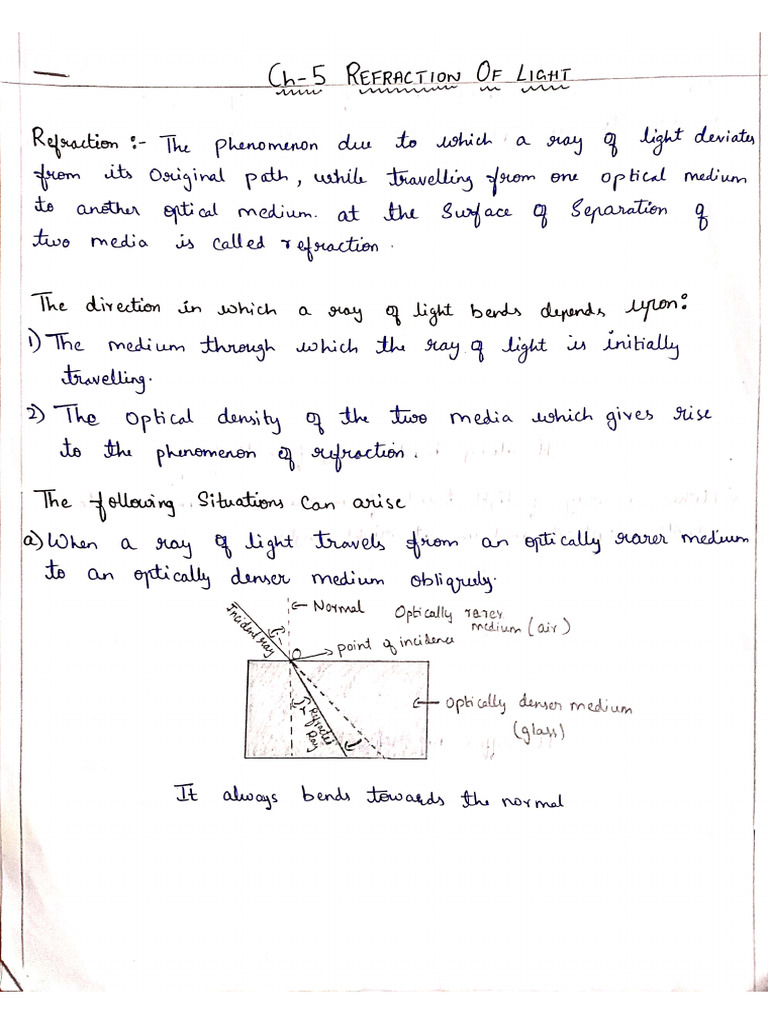 Ch-5 REFRACTION OF LIGHT
Refraction :- The phenomenon due to which a ray of light deviates
from its Original path, while travelling from one optical medium
to another optical medium. at the Surface of Separation of
two media is called refraction.
The direction in which a ray of light bends depends upon:
1) The medium through which the ray of light is initially
travelling.
2) The Optical density of the two media which gives rise
to the phenomenon of refraction.
The following Situations Can arise
a) When a ray of light travels from an optically rarer medium
to an optically denser medium obliquely.
Incident ray
i
Normal
Optically rarer
medium (air)
O
point of incidence
r
Refracted
Ray
Optically denser medium
(glass)
It always bends towards the normal